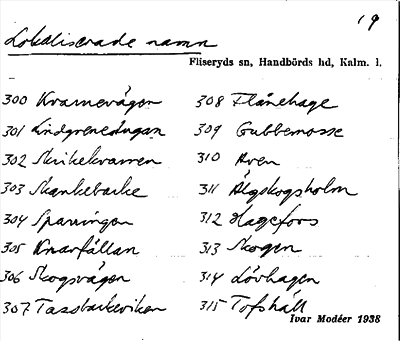 19
Lokaliserade namn
Fliseryds sn, Handbörds hd, Kalm. l.
300 Kramevägen
301 Lindgrenestugan
302 Skrikekvarnen
303 Skankebacke
304 Sparringen
305 Knarfällan
306 Skogsvägen
307 Tassbackeviken
308 Flånehage
309 Gubbemosse
310 Aven
311 Älgskogsholm
312 Hagefors
313 Skogen
314 Lövhagen
315 Tofshäll
Ivar Modéer 1938